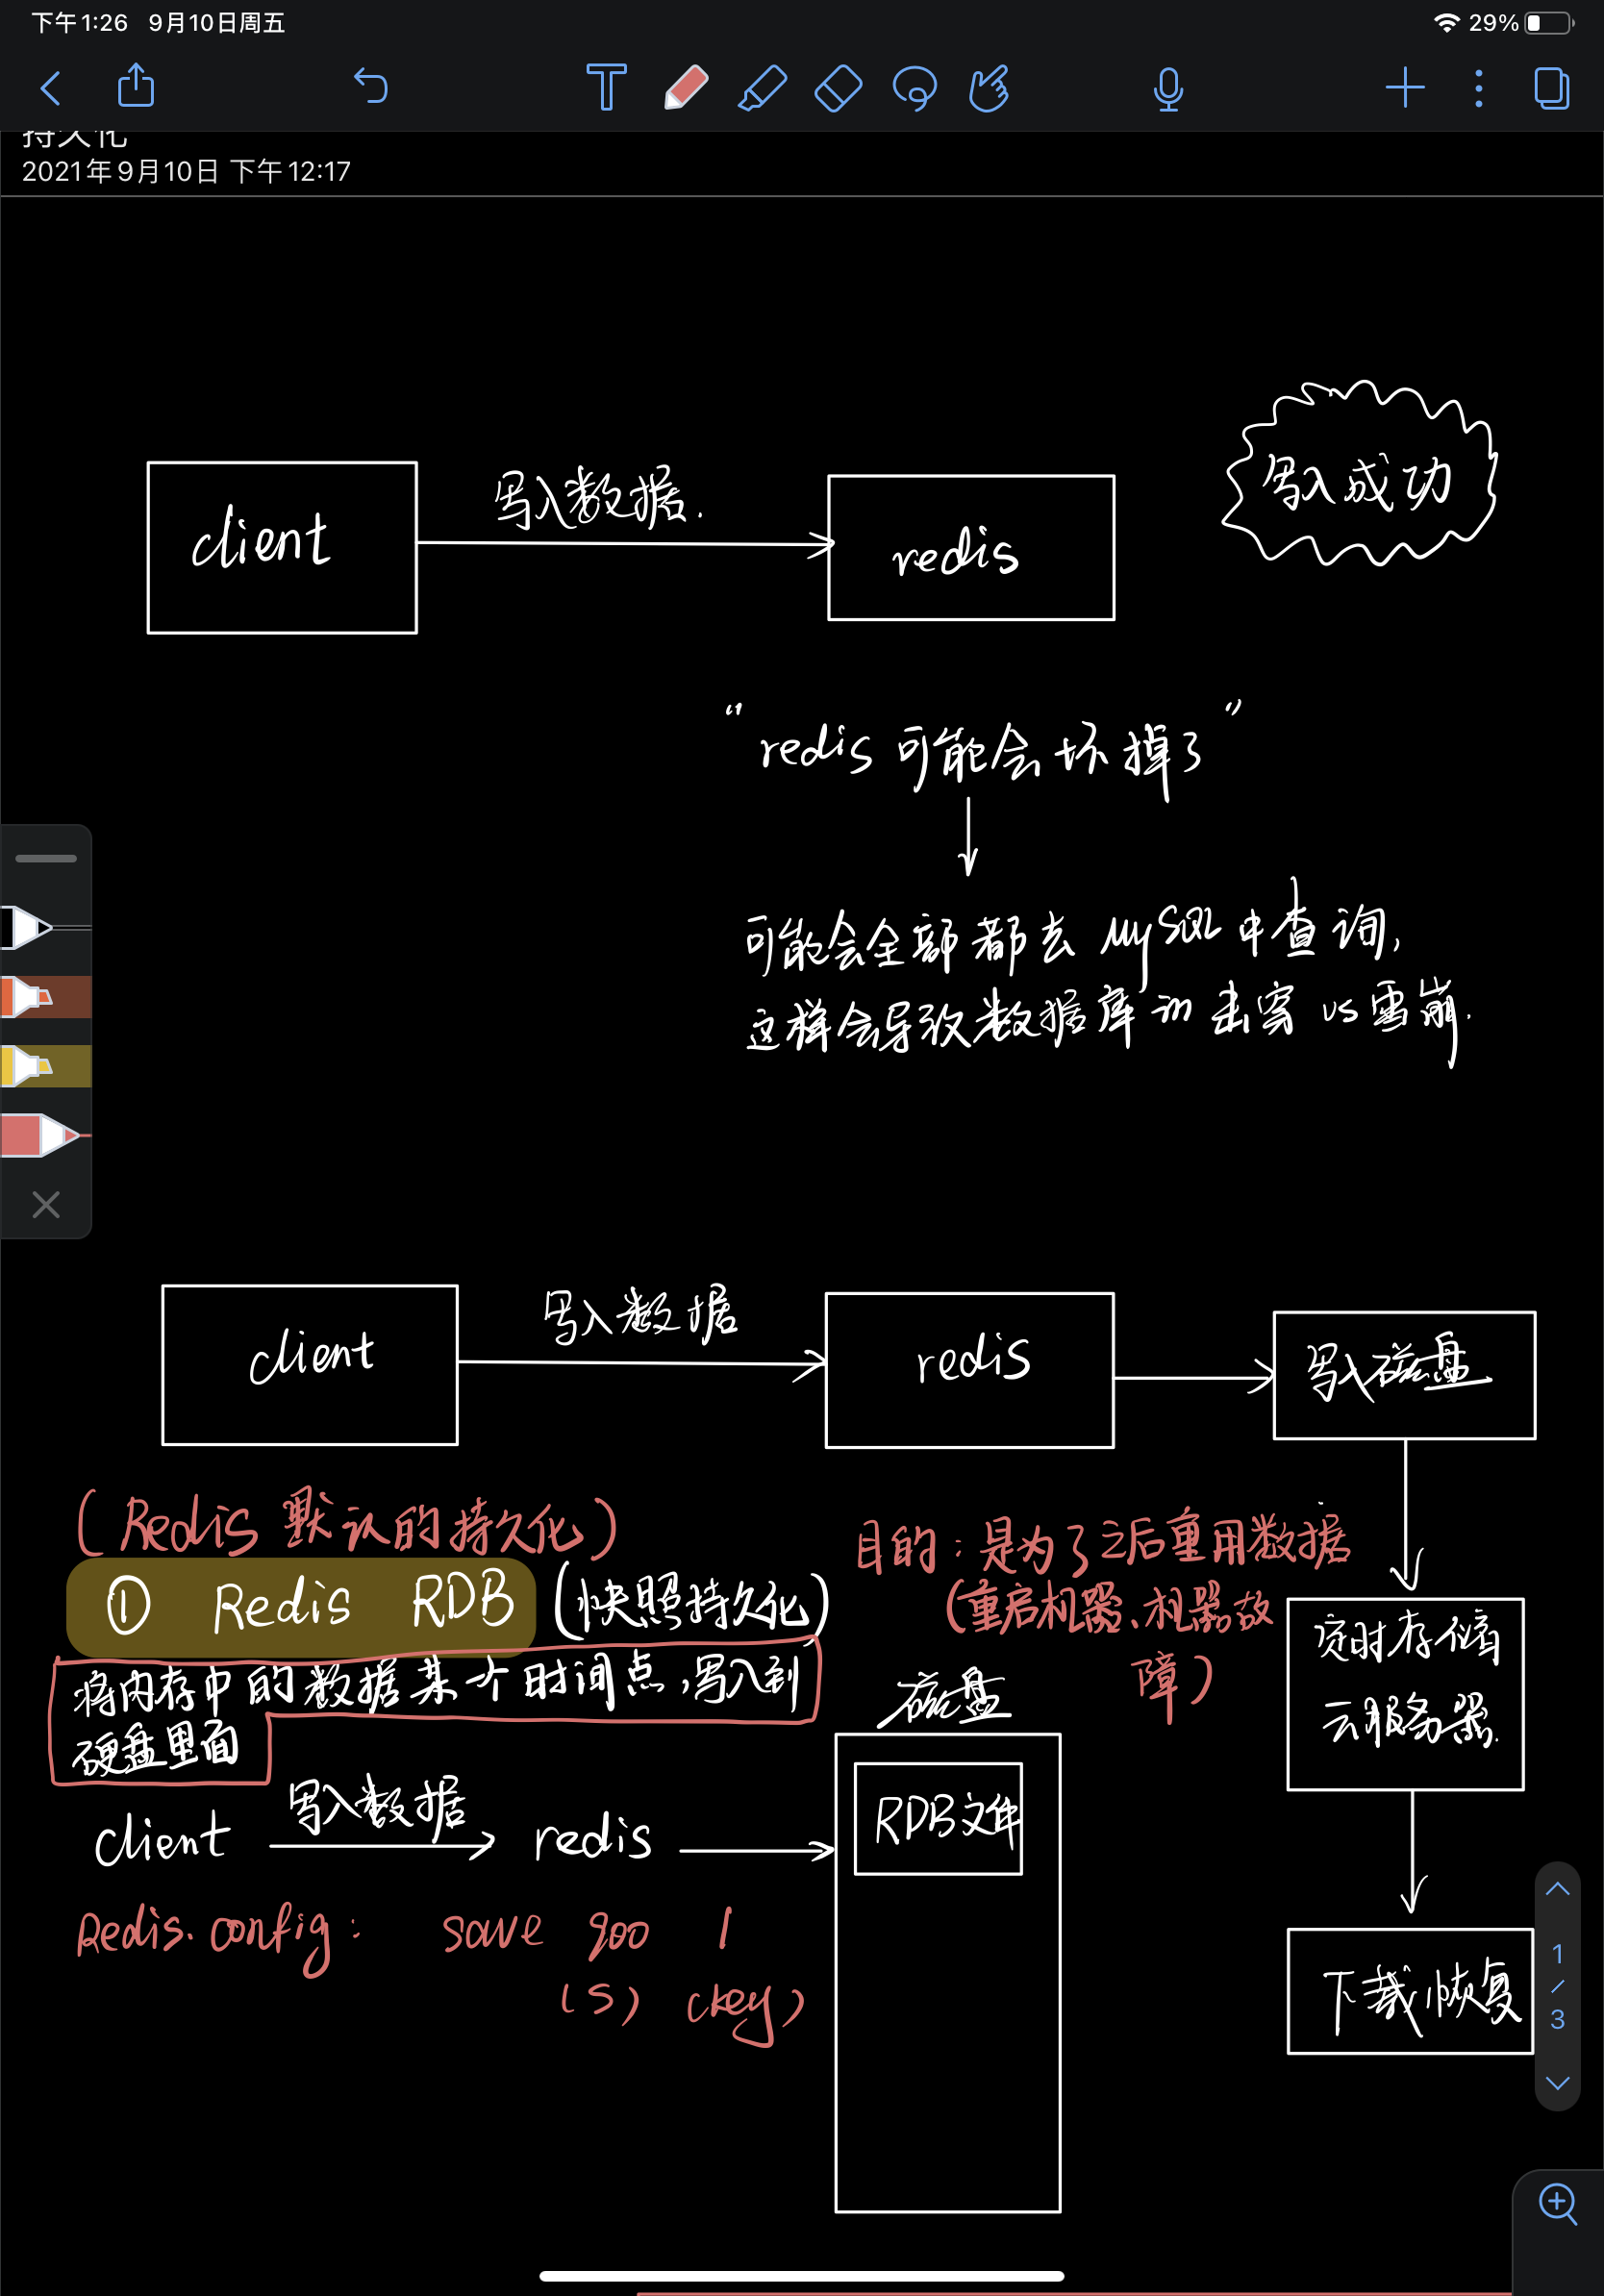 下午1:26 9月10日周五
29%
持久化
2021年9月10日 下午12:17
client
写入数据.
redis
写入成功
“redis可能会坏掉了”
可能会全部都去MySQL中查询,
这样会导致数据库的击穿 vs 雪崩.
client
写入数据
redis
写入磁盘
(Redis 默认的持久化)
① Redis RDB (快照持久化)
将内存中的数据某个时间点,写入到
硬盘里面
目的:是为了之后重用数据
(重启机器、机器故
障)
定时存储
云服务器.
磁盘
RDB文件
client
写入数据
redis
Redis.config: save 900 1
(s) (key)
下载恢复
1
/
3